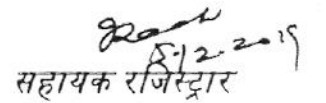 5.12.2019
सहायक रजिस्ट्रार